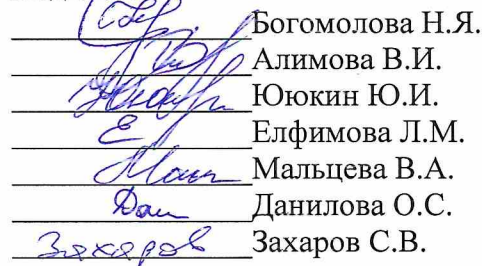 Богомолова Н.Я.
Алимова В.И.
Ююкин Ю.И.
Е Елфимова Л.М.
Мальцева В.А.
Дан Данилова О.С.
Захаров Захаров С.В.